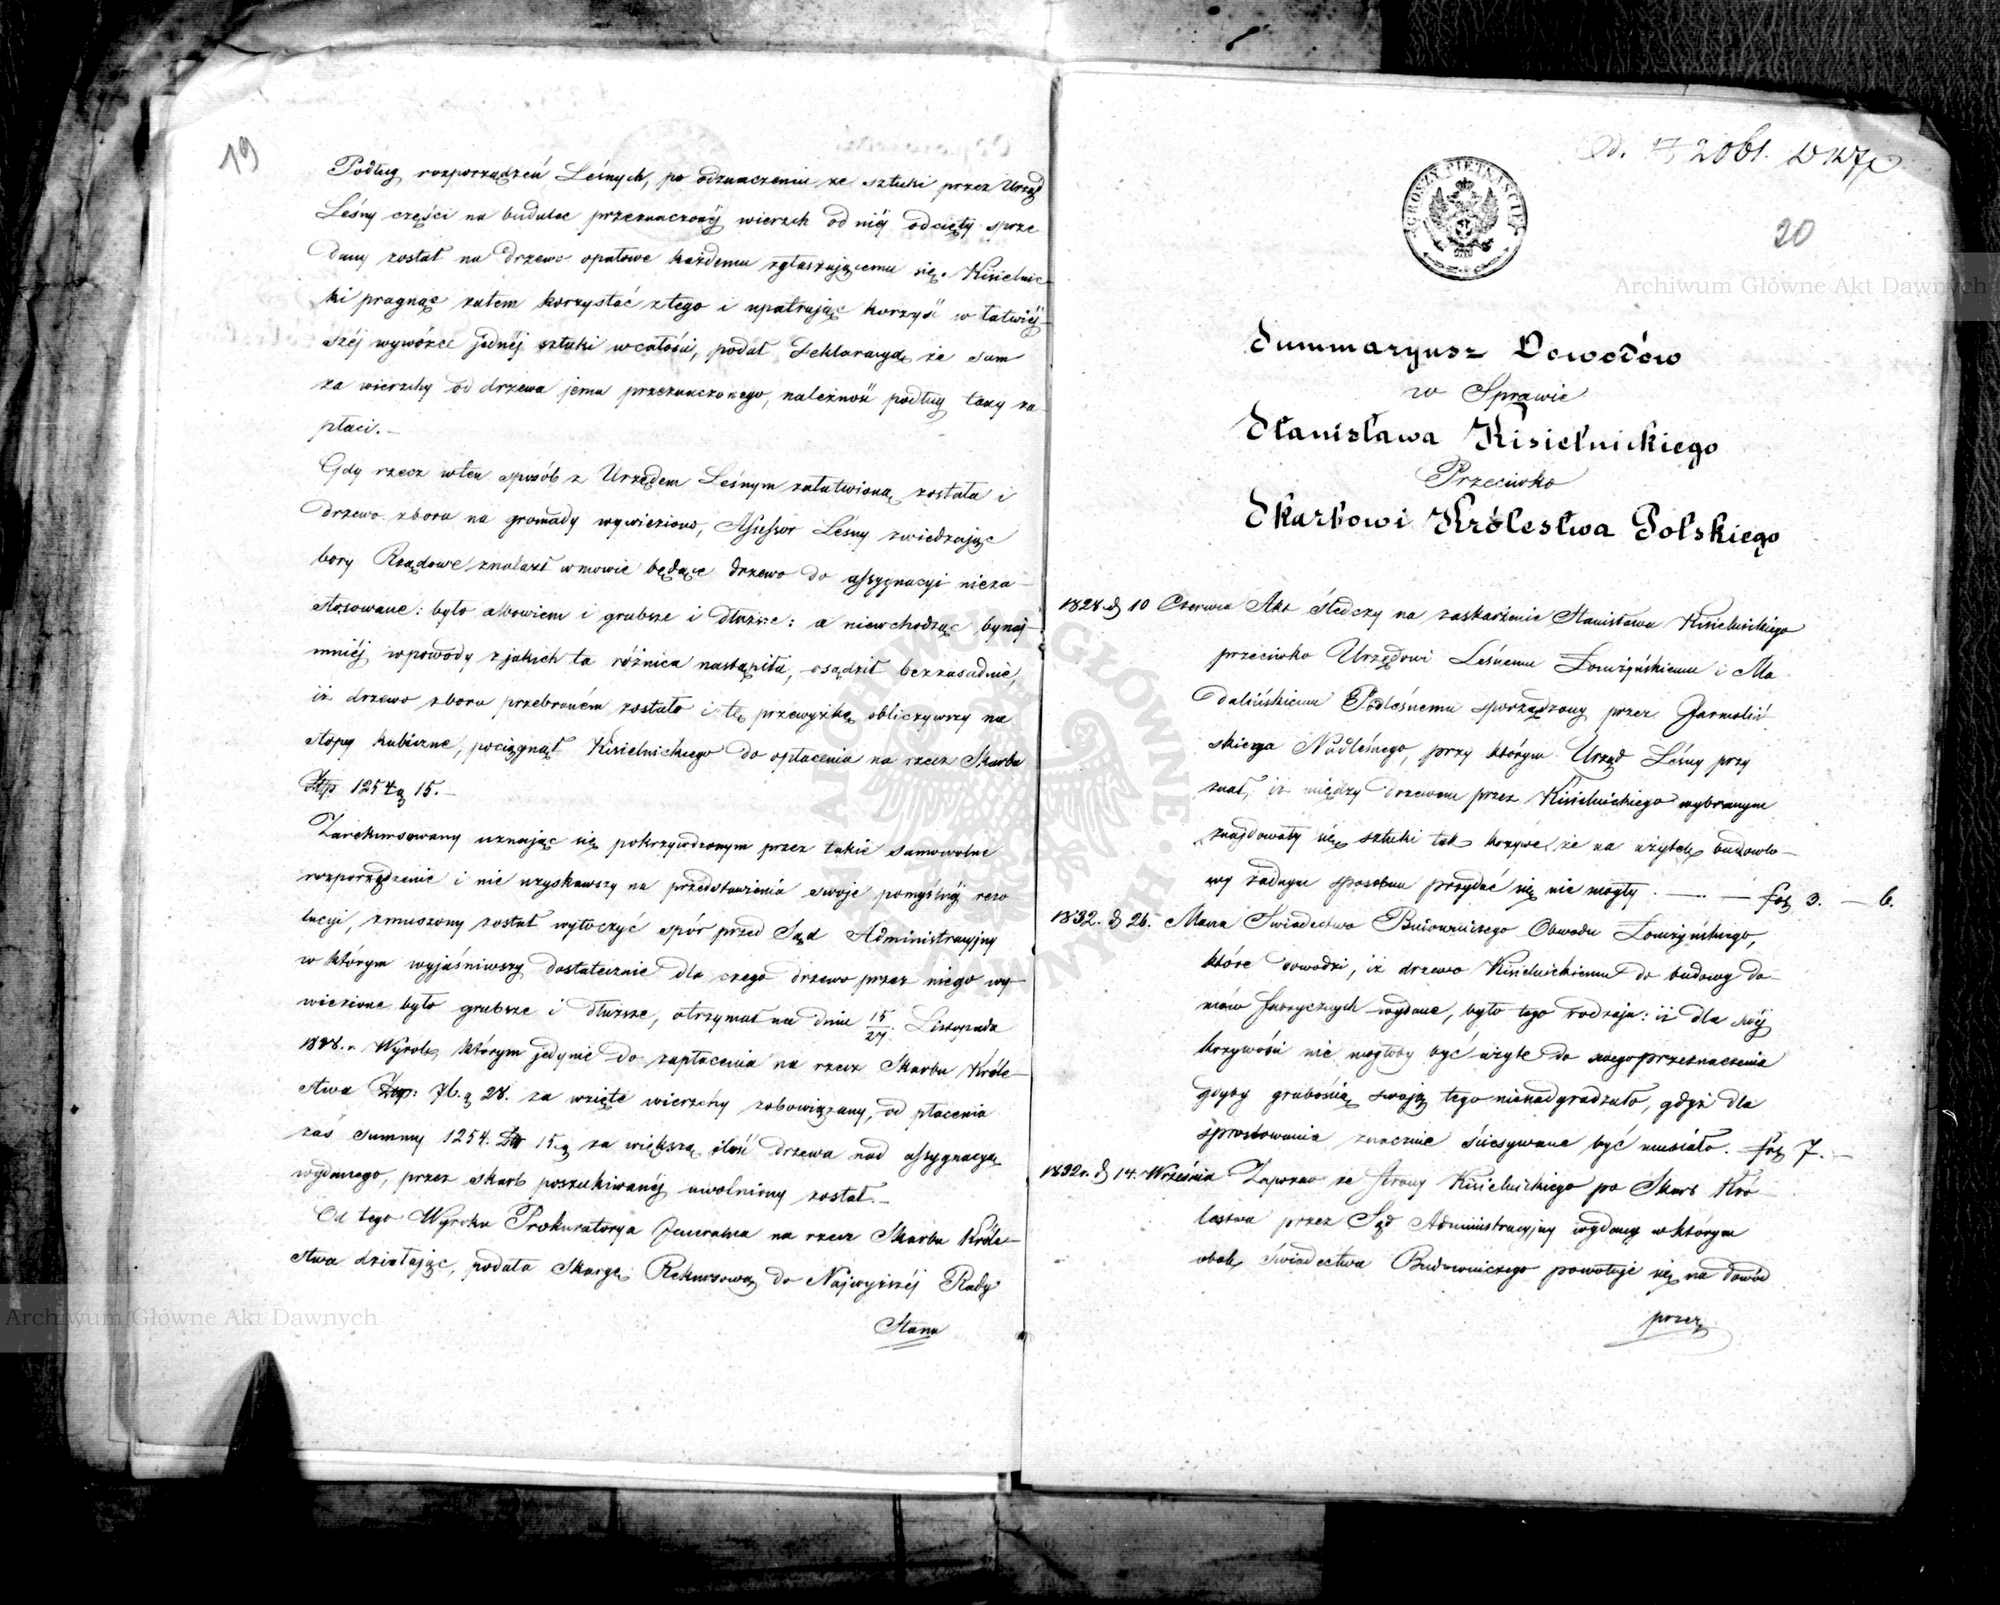 19
Podług rozporządzeń Leśnych, po odznaczeniu ze sztuki przez Urząd
Leśny części na budulec przeznaczonéj wierzch od niéj odcięty sprze
dany został na drzewo opałowe każdemu zgłaszającemu się. Kisielnic
ki pragnąc zatem korzystać z tego i upatrując korzyść w łatwiéj
széj wywózce jednéj sztuki wcałości, podał Deklaracyą że sam
za wierzchy od drzewa jemu przeznaczonego, należność podług taxy za
płaci.
Gdy rzecz wten sposób z Urzędem Leśnym załatwioną została i
drzewo zboru na gromady wywieziono, Assessor Leśny zwiedzając
bory Rządowe znalazł wmowie będące drzewo do assygnacyi nieza
stosowane: było albowiem i grubsze i dłuższe: a niewchodząc bynaj
mniéj wpowody zjakich ta różnica nastąpiła, osądził bezzasadnie,
iż drzewo zboru przebraném zostało i tę przewyżkę obliczywszy na
stopy kubiczne, pociągnął Kisielnickiego do opłacenia na rzecz Skarbu
Złp 1254 g 15.
Zarekursowany uznając się pokrzywdzonym przez takie samowolne
rozporządzenie i nie uzyskawszy na przedstawienia swoje pomyślnéj rezo
lucyi, zmuszony został wytoczyć spór przed Sąd Administracyjny
w którym wyjaśniwszy dostatecznie dla czego drzewo przez niego wy
wiezione było grubsze i dłuższe, otrzymał na dniu 15/27. Listopada
1838. r. Wyrok, którym jedynie do zapłacenia na rzecz Skarbu Króle
stwa Złp: 76. g 28. za wzięte wierzchy zobowiązany, od płacenia
zaś summy 1254. Złp 15. g za większą ilość drzewa nad assygnacyą
wydanego, przez skarb poszukiwanéj uwolniony został.
Od tego Wyroku Prokuratorya Jeneralna na rzecz Skarbu Króle
stwa działając, podała Skargę Rekursową do Najwyższéj Rady
Stanu
20
GROSZY PIĘTNAŚCIE
Summaryusz Dowodów
w Sprawie
Stanisława Kisielnickiego
Przeciwko
Skarbowi Królestwa Polskiego
1828 d 10 Czerwca Akt śledczy na zaskarżenie Stanisława Kisielnickiego
przeciwko Urzędowi Leśnemu Łomżyńskiemu i Ma
dalińskiemu Podleśnemu sporządzony przez Jarmoliń
skiego Nadleśnego, przy którym Urząd Leśny przy
znał, iż między drzewem przez Kisielnickiego wybranym
znajdowały się sztuki tak krzywe, że na użytek budowlo
wy żadnym sposobem przydać się nie mogły. fol 3. — 6.
1832. d 26. Marca Świadectwo Budowniczego Obwodu Łomżyńskiego,
które dowodzi, iż drzewo Kisielnickiemu do budowy do
mów fabrycznych wydane, było tego rodzaju: iż dla swéj
krzywości nie mogłoby być użyte do swego przeznaczenia
gdyby grubością swoją tego nienadgradzało, gdyż dla
sprostowania znacznie ściesywane być musiało. fol 7.
1832 r. d 14. Września Zapozew ze strony Kisielnickiego po Skarb Kró
lestwa przez Sąd Administracyjny wydany w którym
obok świadectwa Budowniczego powołuje się na dowód
przez
Archiwum Główne Akt Dawnych
Archiwum Główne Akt Dawnych
ARCHIWUM GŁÓWNE AKT DAWNYCH